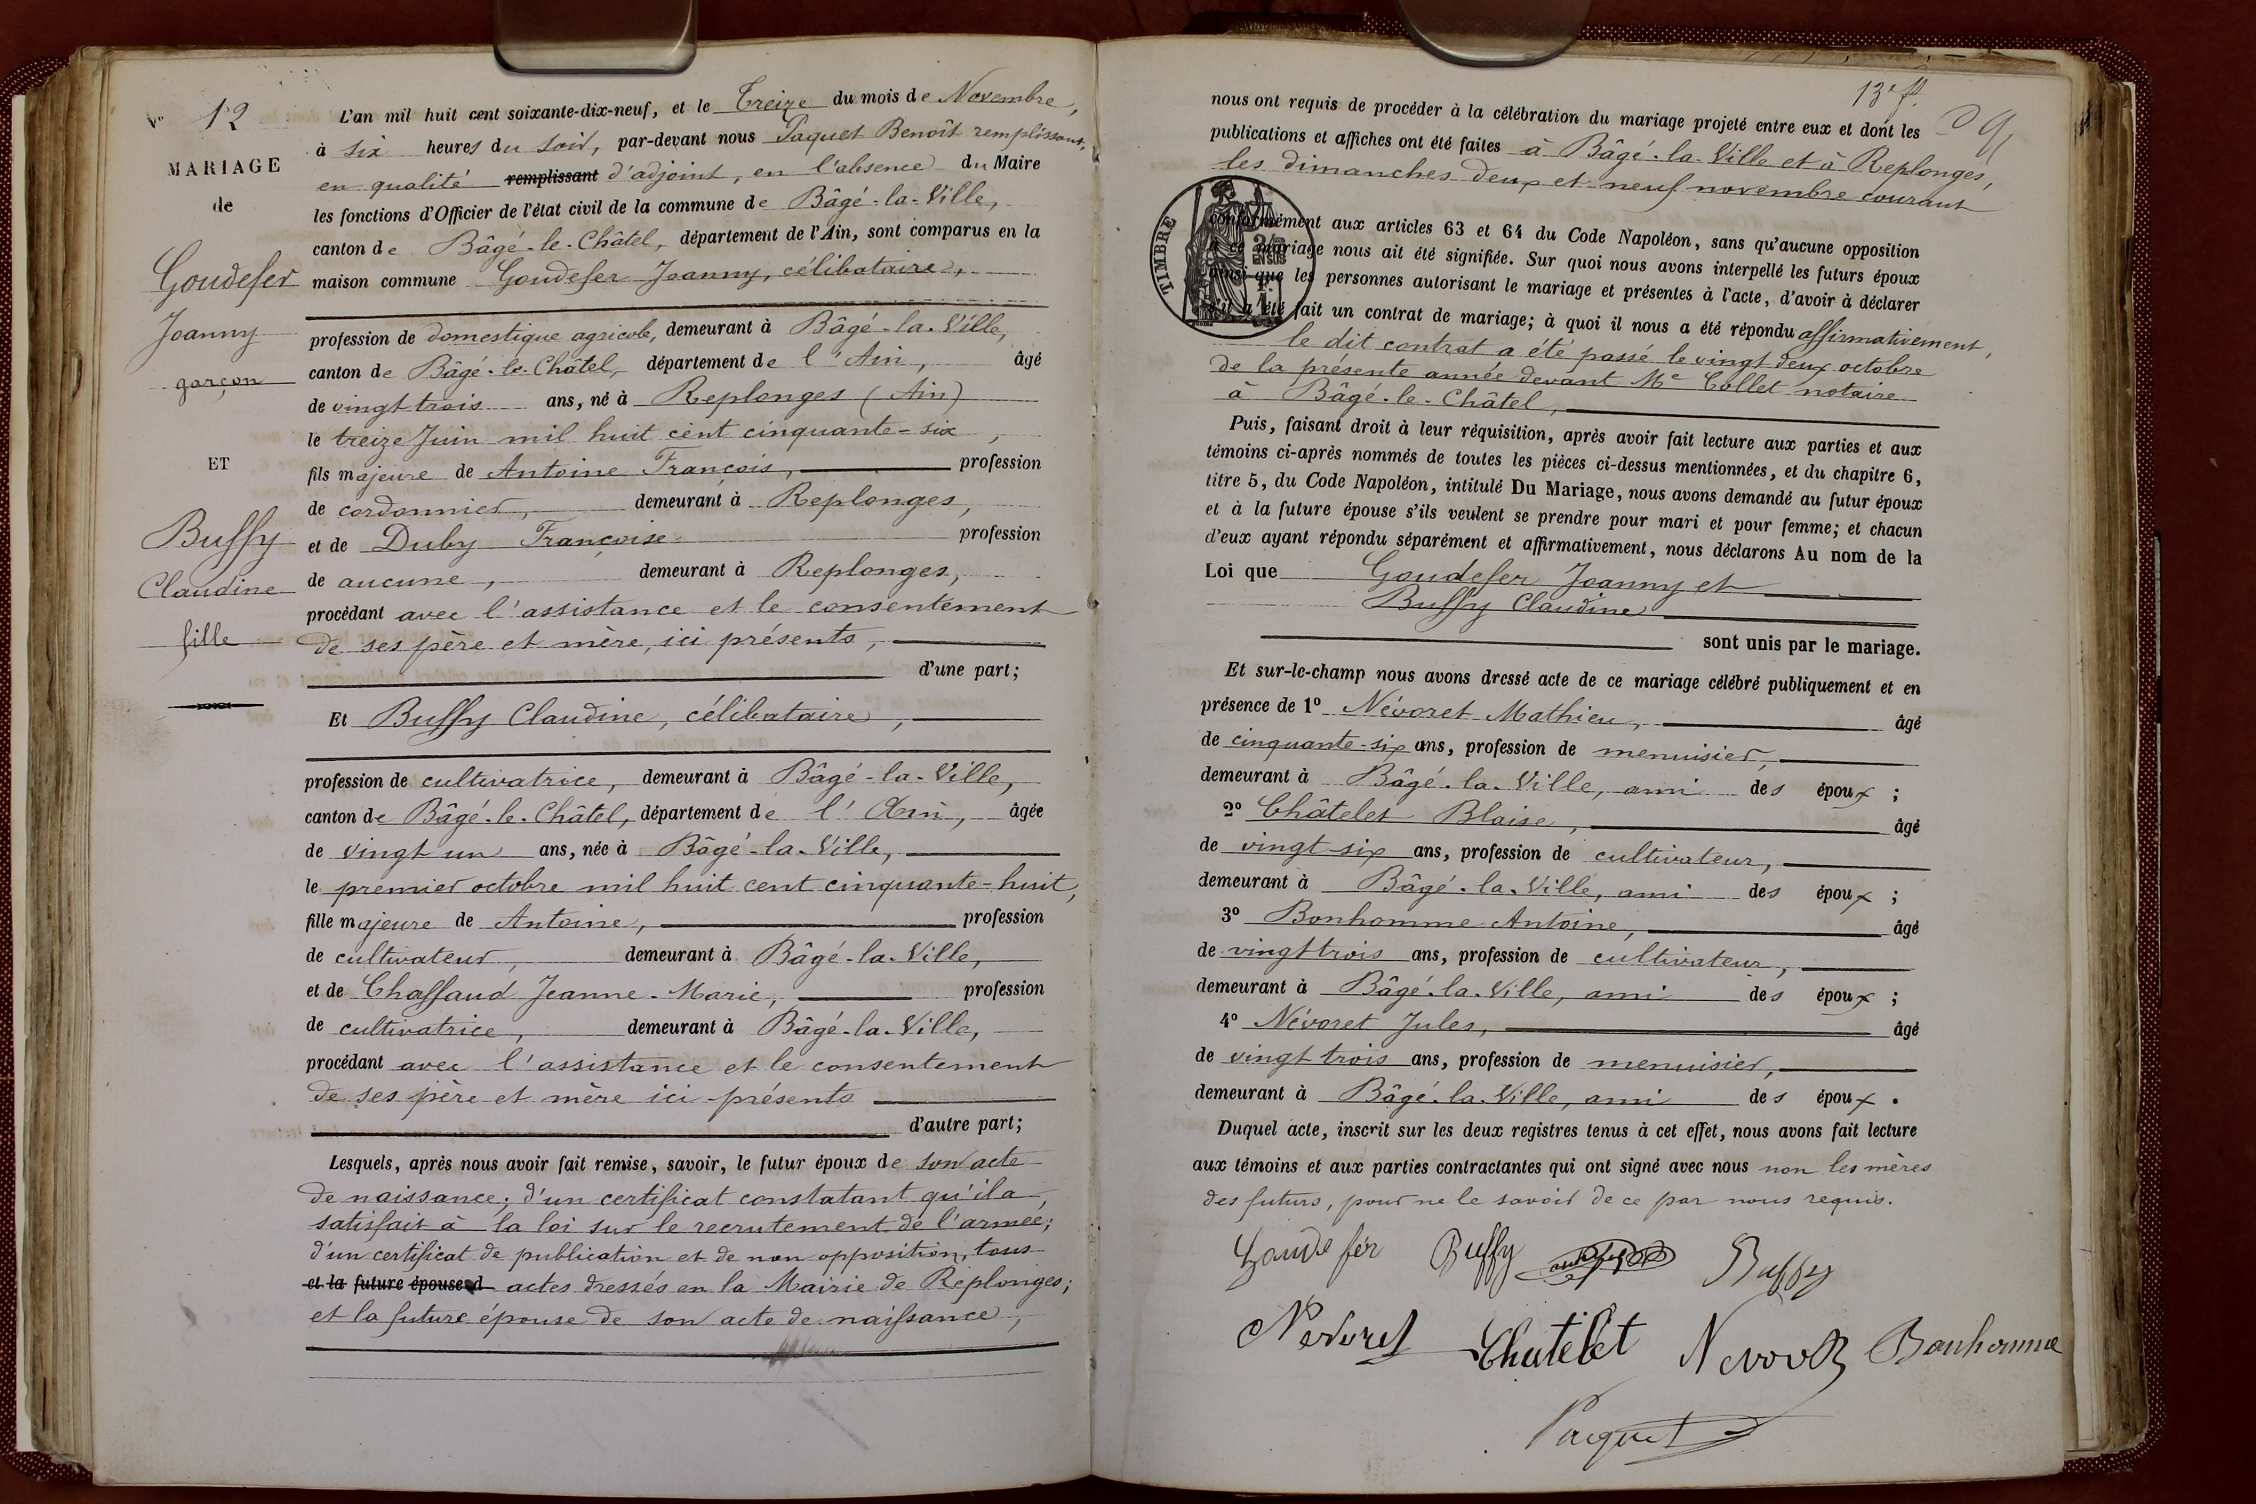 N° 12
MARIAGE
de
Goudefer
Joanny
garçon
ET
Buffy
Claudine
fille
L'an mil huit cent soixante-dix-neuf, et le Treize du mois de Novembre,
à six heures du soir, par-devant nous Paquet Benoît remplissant,
en qualité remplissant d'adjoint, en l'absence du Maire
les fonctions d'Officier de l'état civil de la commune de Bâgé-la-Ville,
canton de Bâgé-le-Châtel, département de l'Ain, sont comparus en la
maison commune Goudefer Joanny, célibataire,
profession de domestique agricole, demeurant à Bâgé-la-Ville,
canton de Bâgé-le-Châtel, département de l'Ain, âgé
de vingt trois ans, né à Replonges (Ain)
le treize Juin mil huit cent cinquante-six,
fils majeure de Antoine François, profession
de cordonnier, demeurant à Replonges,
et de Duby Françoise profession
de aucune, demeurant à Replonges,
procédant avec l'assistance et le consentement
de ses père et mère, ici présents,
d'une part;
Et Buffy Claudine, célibataire,
profession de cultivatrice, demeurant à Bâgé-la-Ville,
canton de Bâgé-le-Châtel, département de l'Ain, âgée
de vingt un ans, née à Bâgé-la-Ville,
le premier octobre mil huit cent cinquante-huit,
fille majeure de Antoine, profession
de cultivateur, demeurant à Bâgé-la-Ville,
et de Chaffaud Jeanne-Marie, profession
de cultivatrice, demeurant à Bâgé-la-Ville,
procédant avec l'assistance et le consentement
de ses père et mère ici présents
d'autre part;
Lesquels, après nous avoir fait remise, savoir, le futur époux de son acte
de naissance; d'un certificat constatant qu'il a
satisfait à la loi sur le recrutement de l'armée;
d'un certificat de publication et de non opposition, tous
et la future épouse d actes dressés en la Mairie de Replonges;
et la future épouse de son acte de naissance,
13e f.
nous ont requis de procéder à la célébration du mariage projeté entre eux et dont les
publications et affiches ont été faites à Bâgé-la-Ville et à Replonges,
les dimanches deux et neuf novembre courant
TIMBRE
conformément aux articles 63 et 64 du Code Napoléon, sans qu'aucune opposition
à ce mariage nous ait été signifiée. Sur quoi nous avons interpellé les futurs époux
ainsi que les personnes autorisant le mariage et présentes à l'acte, d'avoir à déclarer
s'il a été fait un contrat de mariage; à quoi il nous a été répondu affirmativement,
le dit contrat a été passé le vingt deux octobre
de la présente année devant Me Collet notaire
à Bâgé-le-Châtel,
Puis, faisant droit à leur réquisition, après avoir fait lecture aux parties et aux
témoins ci-après nommés de toutes les pièces ci-dessus mentionnées, et du chapitre 6,
titre 5, du Code Napoléon, intitulé Du Mariage, nous avons demandé au futur époux
et à la future épouse s'ils veulent se prendre pour mari et pour femme; et chacun
d'eux ayant répondu séparément et affirmativement, nous déclarons Au nom de la
Loi que Goudefer Joanny et
Buffy Claudine
sont unis par le mariage.
Et sur-le-champ nous avons dressé acte de ce mariage célébré publiquement et en
présence de 1° Névoret Mathieu, âgé
de cinquante-six ans, profession de menuisier,
demeurant à Bâgé-la-Ville, ami des époux;
2° Châtelet Blaise, âgé
de vingt-six ans, profession de cultivateur,
demeurant à Bâgé-la-Ville, ami des époux;
3° Bonhomme Antoine, âgé
de vingt trois ans, profession de cultivateur,
demeurant à Bâgé-la-Ville, ami des époux;
4° Névoret Jules, âgé
de vingt trois ans, profession de menuisier,
demeurant à Bâgé-la-Ville, ami des époux.
Duquel acte, inscrit sur les deux registres tenus à cet effet, nous avons fait lecture
aux témoins et aux parties contractantes qui ont signé avec nous non les mères
des futurs, pour ne le savoir de ce par nous requis.
Goudefer Buffy Buffy
Nevoret Chatelet Nevoret Bonhomme
Paquet